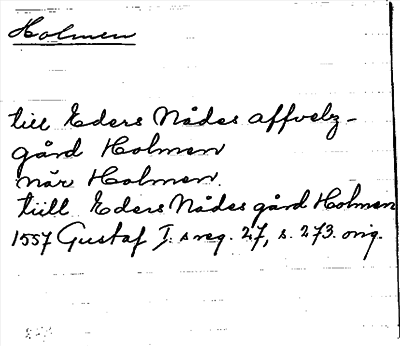 Holmen
till Eders Nådes affvelz-
gård Holmen
når Holmen.
tiill Eders Nådes gård Holmen
1557 Gustaf I:s reg. 27, s. 273. orig.